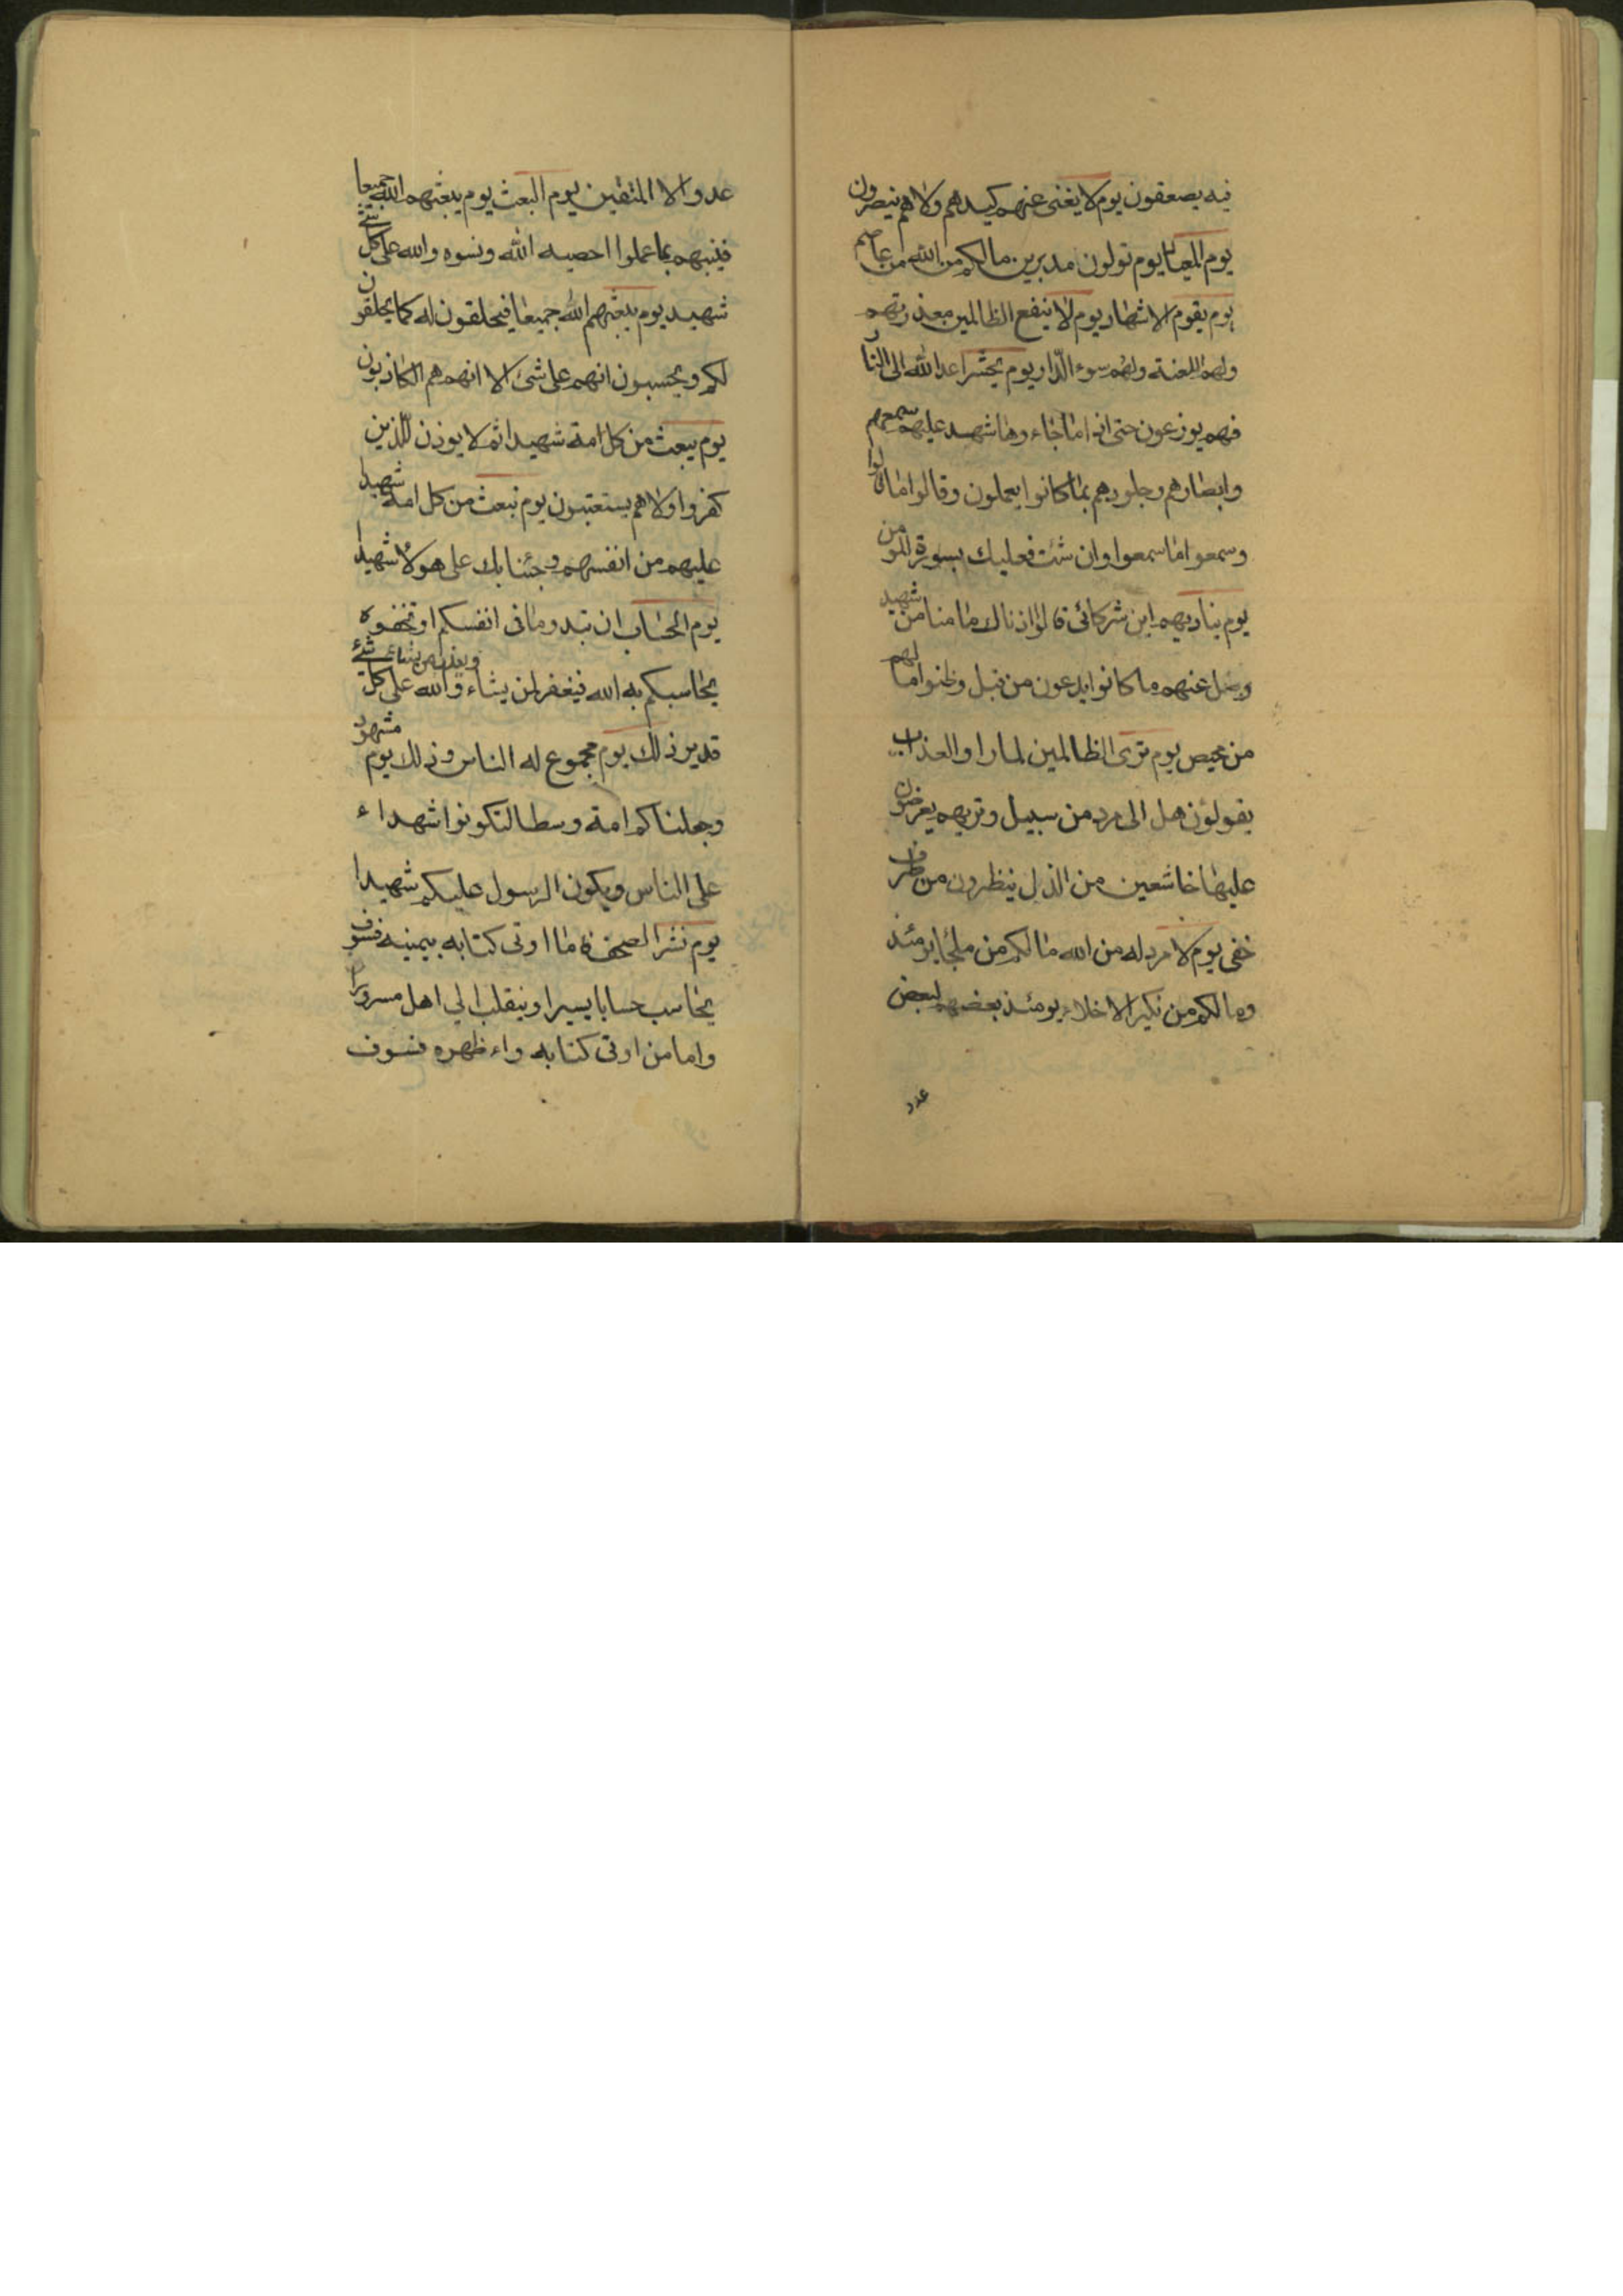 فيه يصعقون يوم لا يغنى عنهم كيدهم ولا هم ينصرون
يوم المعاد يوم تولون مدبرين مالكم من الله من عاصم
يوم يقوم الاشهاد يوم لا ينفع الظالمين معذرتهم
ولهم اللعنة ولهم سوء الدار ويوم يحشر اعداالله الى النار
فهم يوزعون حتى اذا ما جاءوها شهد عليهم سمعهم
وابصارهم وجلودهم بما كانوا يعملون وقالوا ما قالوا
وسمعوا ما سمعوا وان شئت فعليك بسورة المومن
يوم يناديهم اين شركائى قالوا اذناك ما منا من شهيد
وضل عنهم ما كانوا يدعون من قبل وظنوا ما لهم
من محيص يوم ترى الظالمين لما راوا العذاب
يقولون هل الى مرد من سبيل وتريهم يعرضون
عليها خاشعين من الذل ينظرون من طرف
خفى يوم لا مرد له من الله ما لكم من ملجأ يومئذ
وما لكم من نكير الاخلاء يومئذ بعضهم لبعض
عدو
عدو الا المتقين يوم البعث يوم يبعثهم الله جميعا
فينبهم بما عملوا احصيه الله ونسوه والله على كل شئ
شهيد يوم يبعثهم الله جميعا فيحلفون له كما يحلفون
لكم ويحسبون انهم على شئ الا انهم هم الكاذبون
يوم يبعث من كل امة شهيدا ثم لا يوذن للذين
كفروا ولا هم يستعتبون يوم نبعث من كل امة شهيدا
عليهم من انفسهم وجئنا بك على هولاء شهيدا
يوم الحساب ان تبدو ما فى انفسكم او تخفوه
يحاسبكم به الله فيغفر لمن يشاء ويعذب من يشاء والله على كل شئ
قدير ذلك يوم مجموع له الناس وذلك يوم مشهود
وجعلناكم امة وسطا لتكونوا شهداء
على الناس ويكون الرسول عليكم شهيدا
يوم نشر الصحف اوتى كتابه بيمينه فسوف
يحاسب حسابا يسيرا وينقلب الي اهل مسرورا
واما من اوتى كتابه واء ظهره فسوف